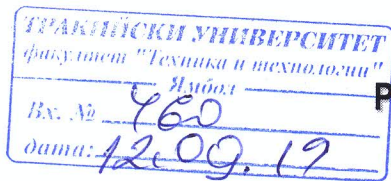 ТРАКИЙСКИ УНИВЕРСИТЕТ
факултет "Техника и технологии"
Ямбол
Р
Вх. № 460
дата: 12.09.19